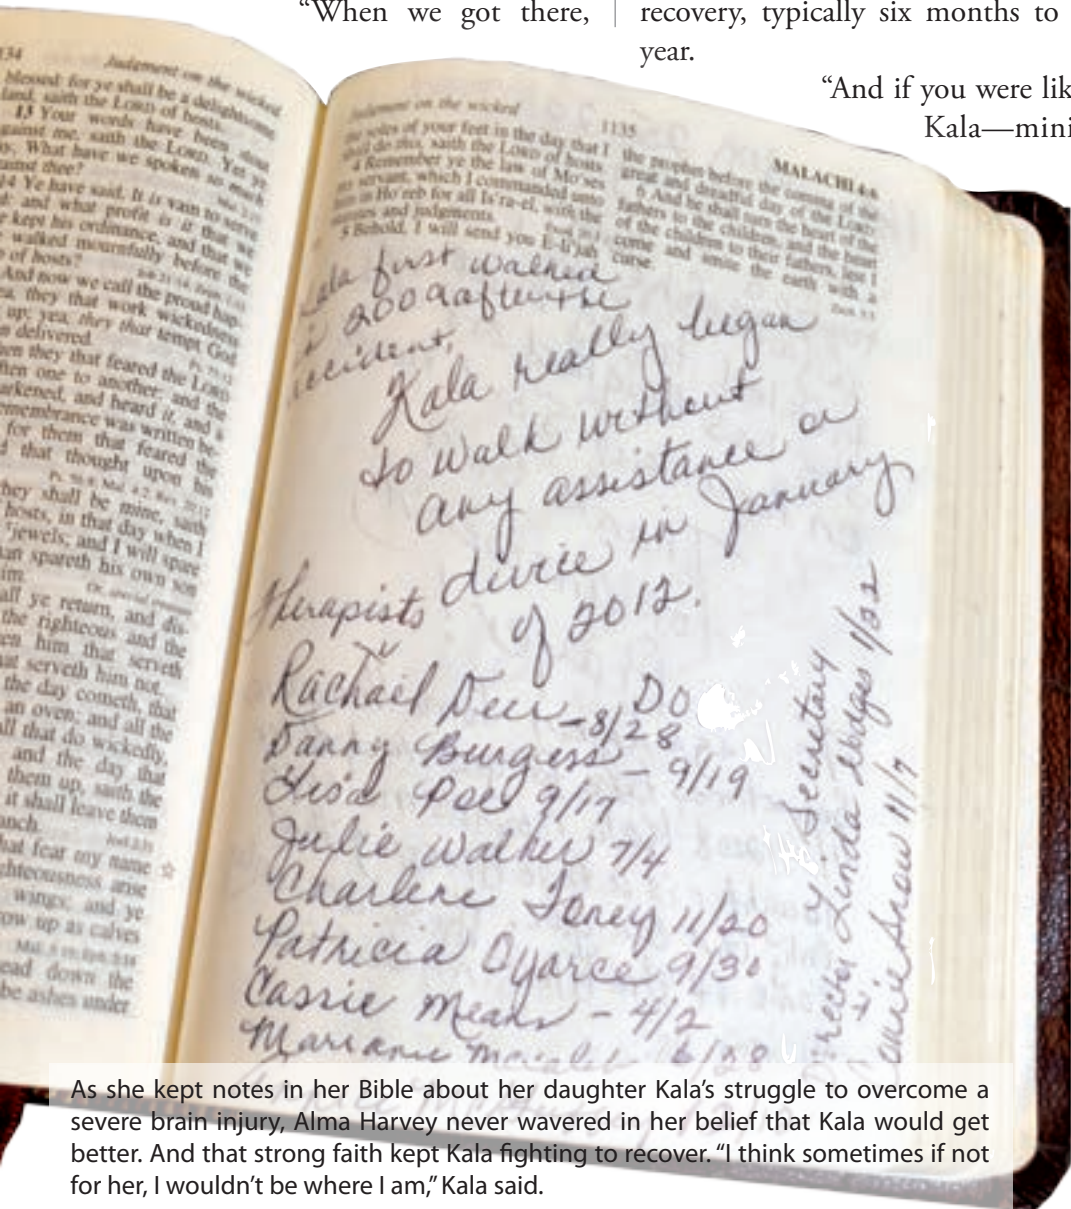 “When we got there,
recovery, typically six months to
year.
“And if you were lik
Kala—mini
134
Judgment on the wicked
blessed: for ye shall be a delightsome
land, saith the LORD of hosts.
13 Your words have been stout
against me, saith the LORD. Yet ye
say, What have we spoken so much
against thee?
14 Ye have said, It is vain to serve
and what profit is it that we
kept his ordinance, and that we
walked mournfully before the
of hosts?
And now we call the proud hap-
yea, they that work wickedness
up; yea, they that tempt God
delivered.
they that feared the LORD
often one to another: and the
hearkened, and heard it, and a
remembrance was written be-
for them that feared the
that thought upon his
they shall be mine, saith
hosts, in that day when I
jewels; and I will spare
spareth his own son
him.
all ye return, and dis-
the righteous and the
him that serveth
that serveth him not.
the day cometh, that
an oven; and all the
all that do wickedly,
and the day that
them up, saith the
it shall leave them
branch.
that fear my name
righteousness arise
wings; and ye
grow up as calves
tread down the
be ashes under
Judgment on the wicked
1135
MALACHI 4:6
the soles of your feet in the day that I
do this, saith the LORD of hosts.
4 Remember ye the law of Mo'ses
my servant, which I commanded unto
in Ho'reb for all Is'ra-el, with the
statutes and judgments.
5 Behold, I will send you E-li'jah
the prophet before the coming of the
great and dreadful day of the LORD:
6 And he shall turn the heart of the
fathers to the children, and the heart
of the children to their fathers, lest I
come and smite the earth with a
curse.
Kala first walked
in 2009 after the
accident.
Kala really began
to walk without
any assistance a
device in January
of 2012.
Therapists
Rachael Deer DO
- 8/28
Danny Burgess - 9/19
Lisa Poe 9/17
Julie Walker 7/4
Charlene Toney 11/20
Patricia Oyarce 9/30
Cassie Means - 4/2
Marianne 6/28
Secretary
Director Linda 1/22
Snow 11/7
As she kept notes in her Bible about her daughter Kala’s struggle to overcome a
severe brain injury, Alma Harvey never wavered in her belief that Kala would get
better. And that strong faith kept Kala fighting to recover. “I think sometimes if not
for her, I wouldn’t be where I am,” Kala said.